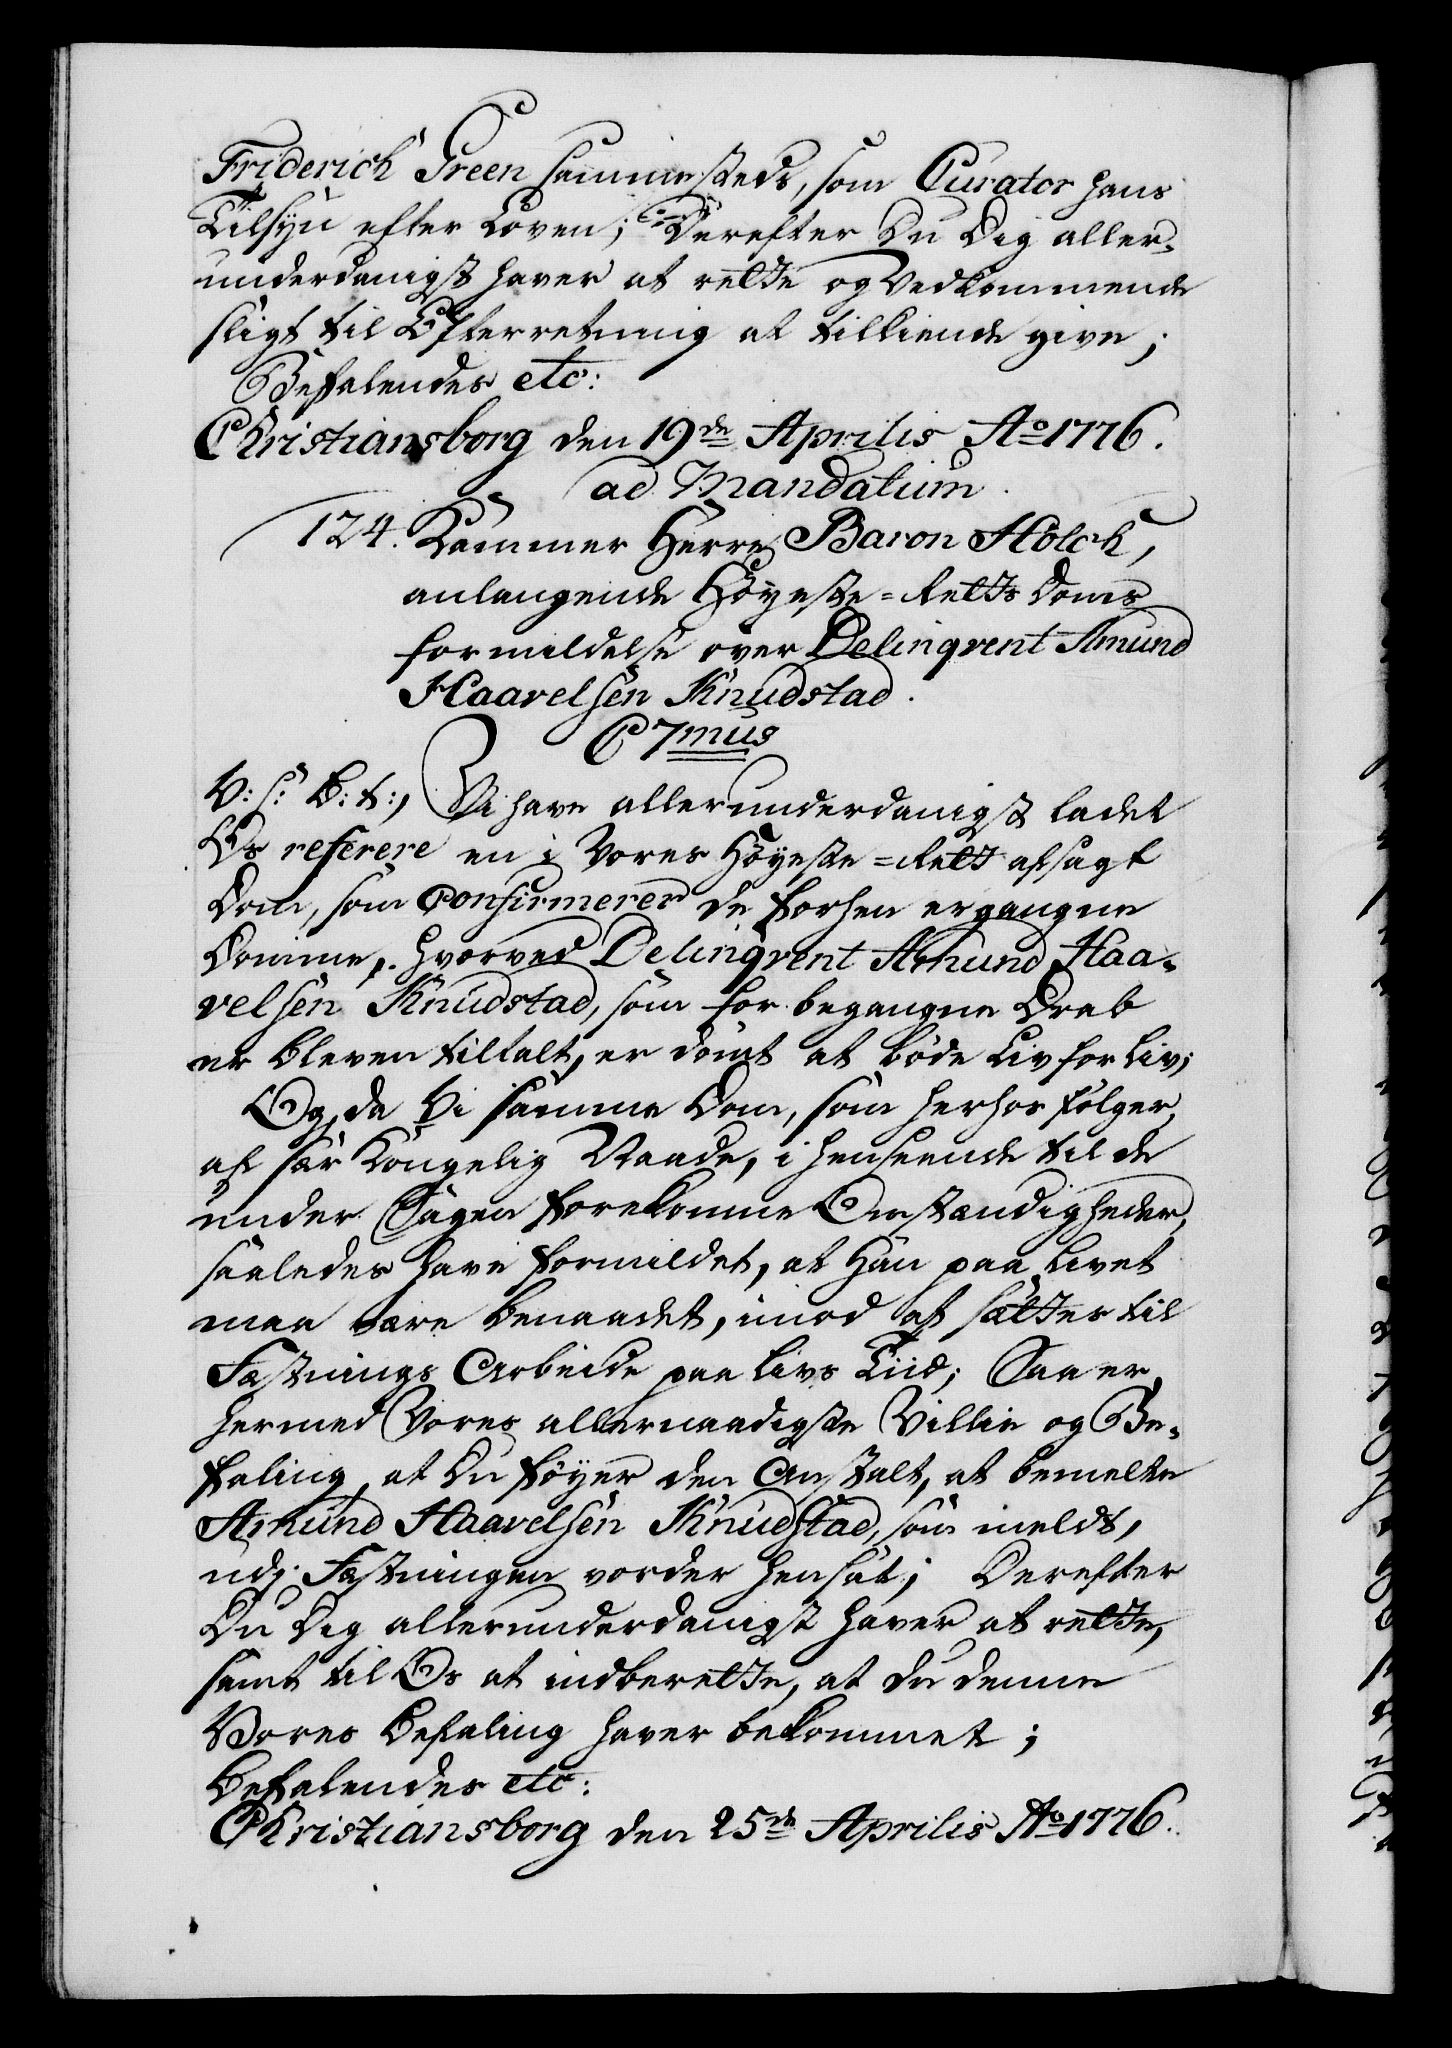 Friderich Green sammesteds, som Curator hans
Tilsyn efter Loven; Derefter Du Dig aller-
underdanigst haver at rette og Vedkommende
sligt til Efterretning at tilkiende give;
Befalendes etc:
Christiansborg den 19de Aprilis Ao 1776.
ad Mandatum.
124. Kammer Herre Baron Holck,
anlangende Høyeste-Retts Doms
formildelse over Delinqvent Amund
Haavelsen Knudstad.
C 7mus
V: S: B: t:, Vi have allerunderdanigst ladet
Os referere en i Vores Høyeste-Rett afsagt
Dom, som Confirmerer de forhen ergangne
Domme, hvorved Delinqvent Amund Haa-
velsen Knudstad, som for begangne Drab
er bleven tiltalt, er dømt at bøde Liv for Liv;
Og, da Vi samme Dom, som herhos følger,
af sær Kongelig Naade, i henseende til de
under Sagen forekomne Omstændigheder,
saaledes have formildet, at Han paa Livet
maa være benaadet, imod at sættes til
Fæstnings Arbeide paa Livs Tiid; Saa er
hermed Vores allernaadigste Villie og Be-
faling, at Du føyer den Anstalt, at bemelte
Amund Haavelsen Knudstad, som meldt,
udj Fæstningen vorder hensat; Derefter
Du Dig allerunderdanigst haver at rette,
samt til Os at indberette, at Du denne
Vores Befaling haver bekommet;
Befalendes etc:
Christiansborg den 25de Aprilis Ao 1776.